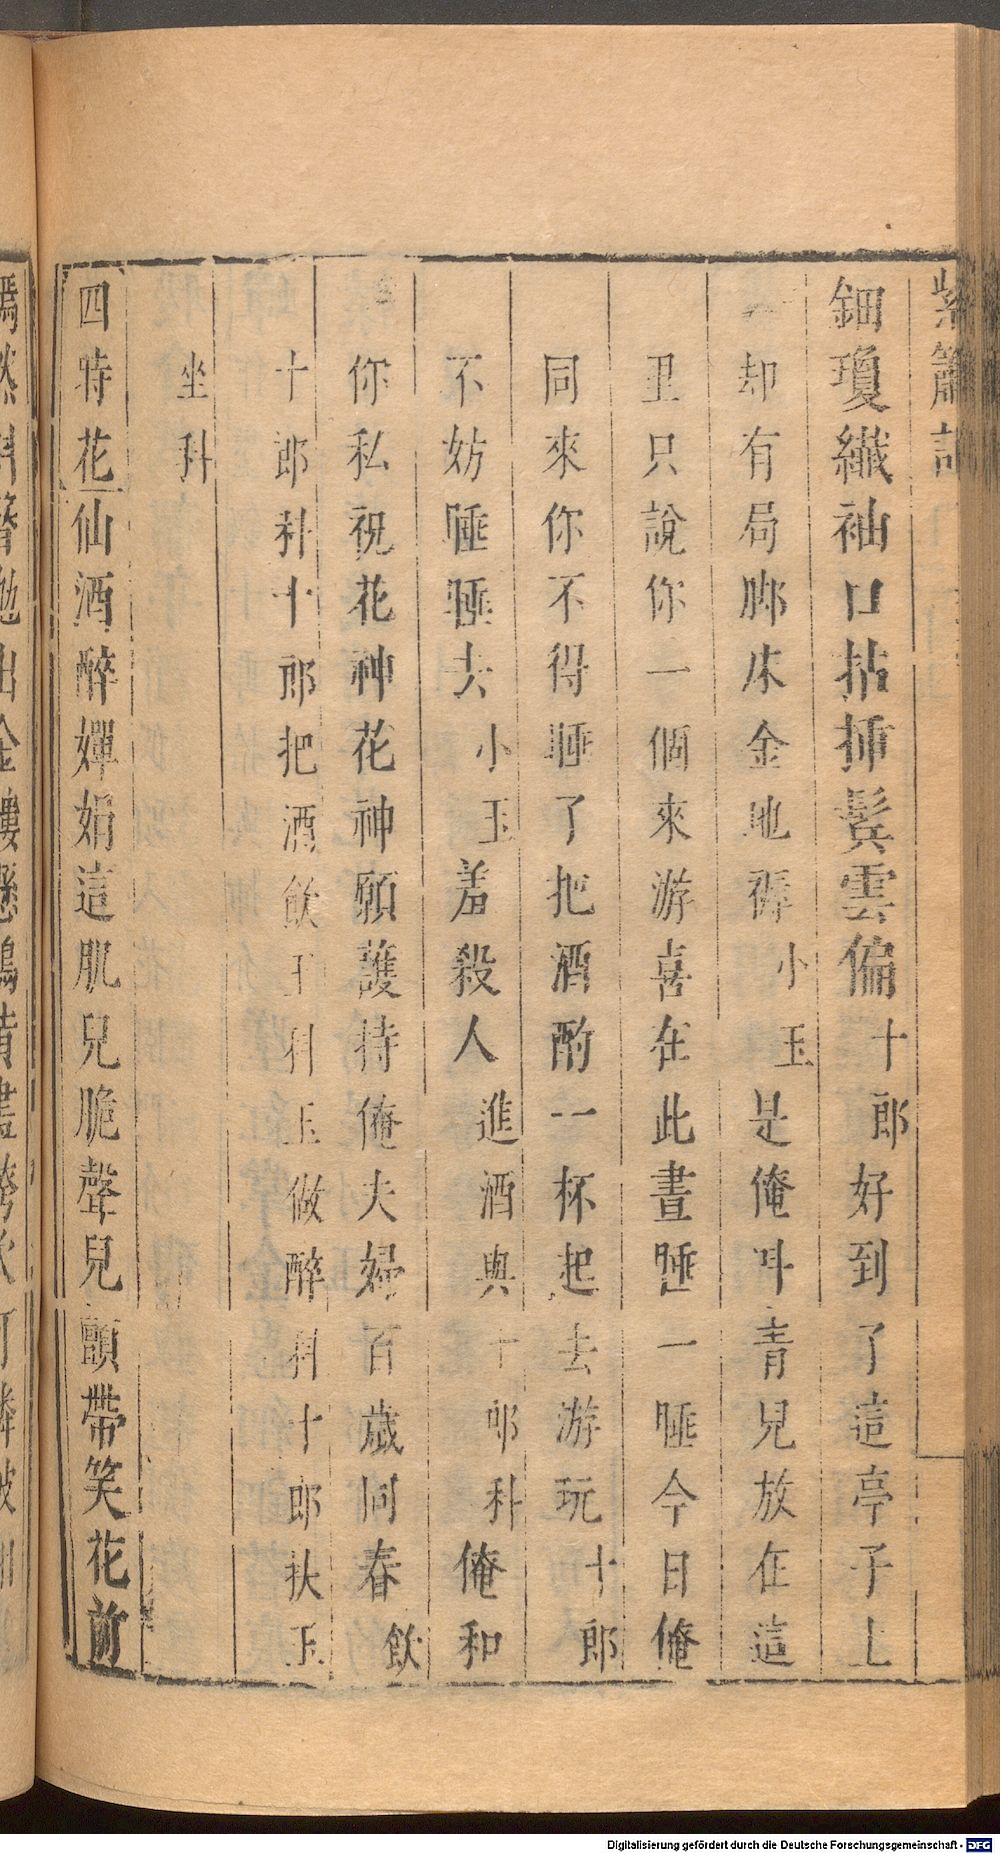 紫簫記
鈿瓊纖袖口拈揷鬓雲偏十郎好到了這亭子上
却有局脚床金地褥小玉是俺叫青兒放在這
丑只說你一個來游喜在此晝睡一睡今日俺
同來你不得睡了把酒酌一杯起去游玩十郎
不妨睡睡去小玉羞殺人進酒與十郎科俺和
你私祝花神花神願護持俺夫婦百歲同春飲
十郎科十郎把酒飲玉科玉做醉科十郎扶玉
坐科
四時花仙酒醉嬋娟這肌兒脆聲兒顫帶笑花前
Digitalisierung gefördert durch die Deutsche Forschungsgemeinschaft - DFG